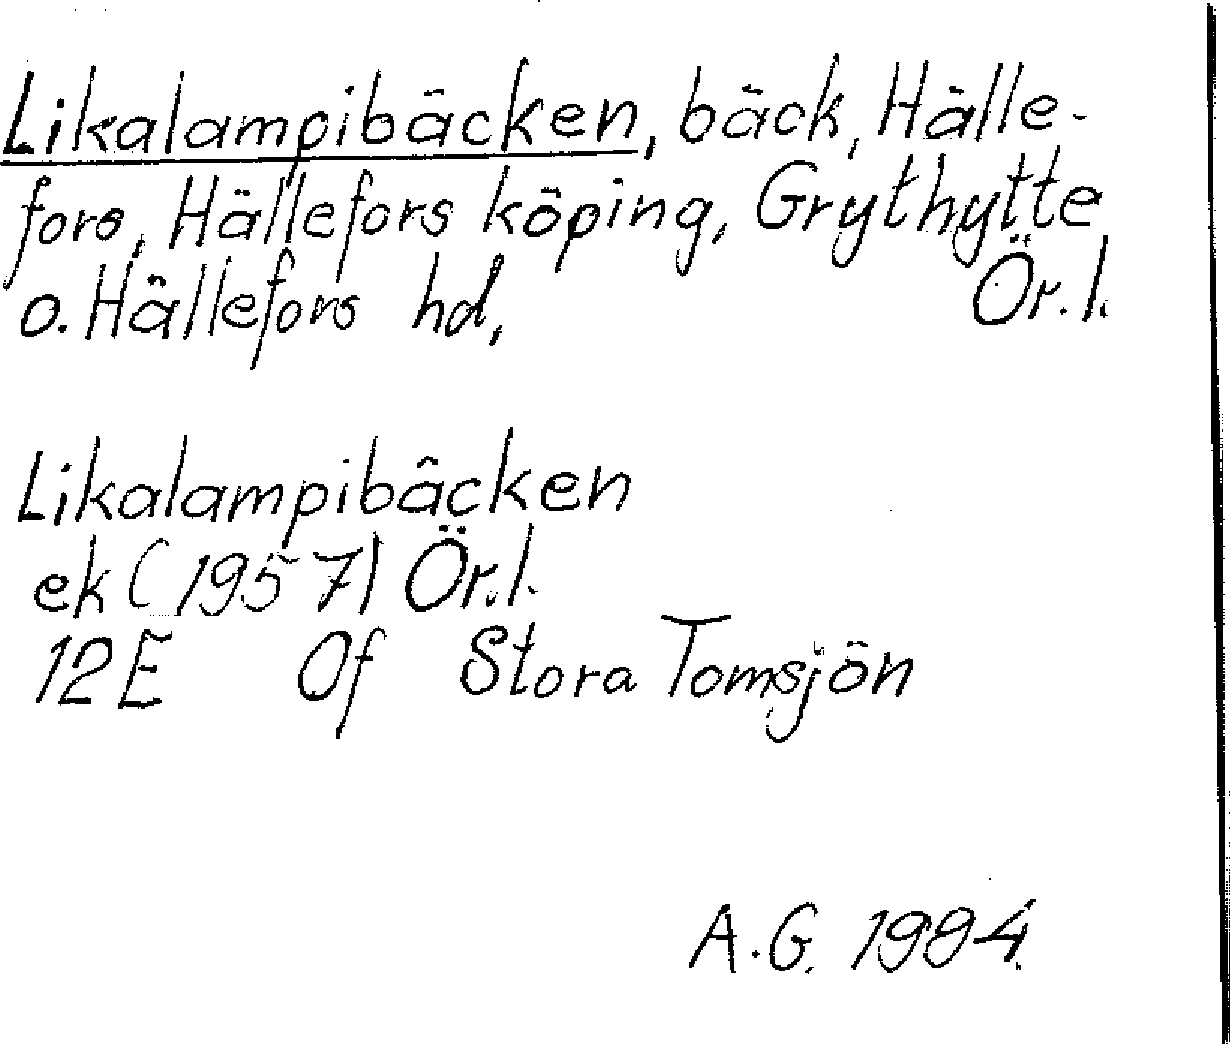 Likalampibäcken, bäck, Hälle-
fors, Hällefors köping, Grythytte
o. Hällefors hd, Ör. l.
Likalampibäcken
ek (1957) Ör. l.
12E 0f Stora Tomsjön
A.G. 1994.